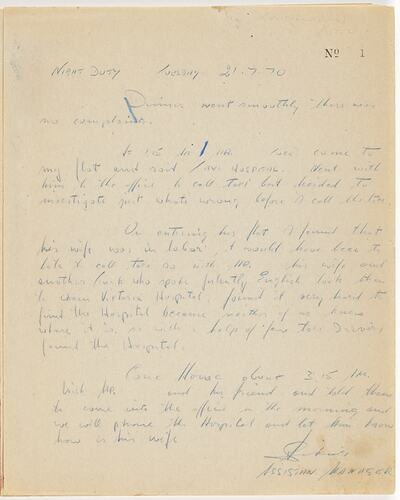 Nº 1
NIGHT DUTY Tuesday 21.7.70
Dinner went smoothly there was
no complaints.
At 1.15 MR. came to
my flat and said wife HOSPITAL. Went with
him to the office to call taxi but decided to
investigate just whats wrong before I call the taxi.
On entering his flat I found that
his wife was in labor, it would have been to
late to call taxi so with MR. his wife and
another Turk who spoke fluently English took them
to Queen Victoria Hospital, found it very hard to
find the Hospital because neither of us knew
where it is, so with a help of few Taxi Drivers
found the Hospital.
Came House about 3.15 AM.
With MR. and his friend and told them
to come into the office in the morning and
we will phone the Hospital and let them know
how is his wife
ASSISTAN MANAGER